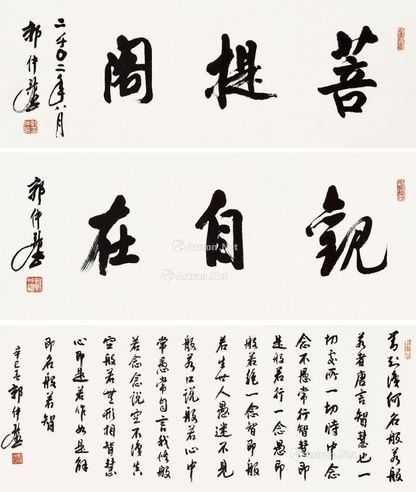 菩提阁
二千〇二年八月
郭仲選
觀自在
郭仲選
善知识何名般若般
若者唐言智慧也一
切處所一切時中念
念不愚常行智慧即
是般若行一念愚即
般若絕一念智即般
若生世人愚迷不見
般若口說般若心中
常愚常自言我修般
若念念說空不識真
空般若無形相智慧
心即是若作如是解
即名般若智
辛巳春郭仲選
Artron.Net
Artron.Net